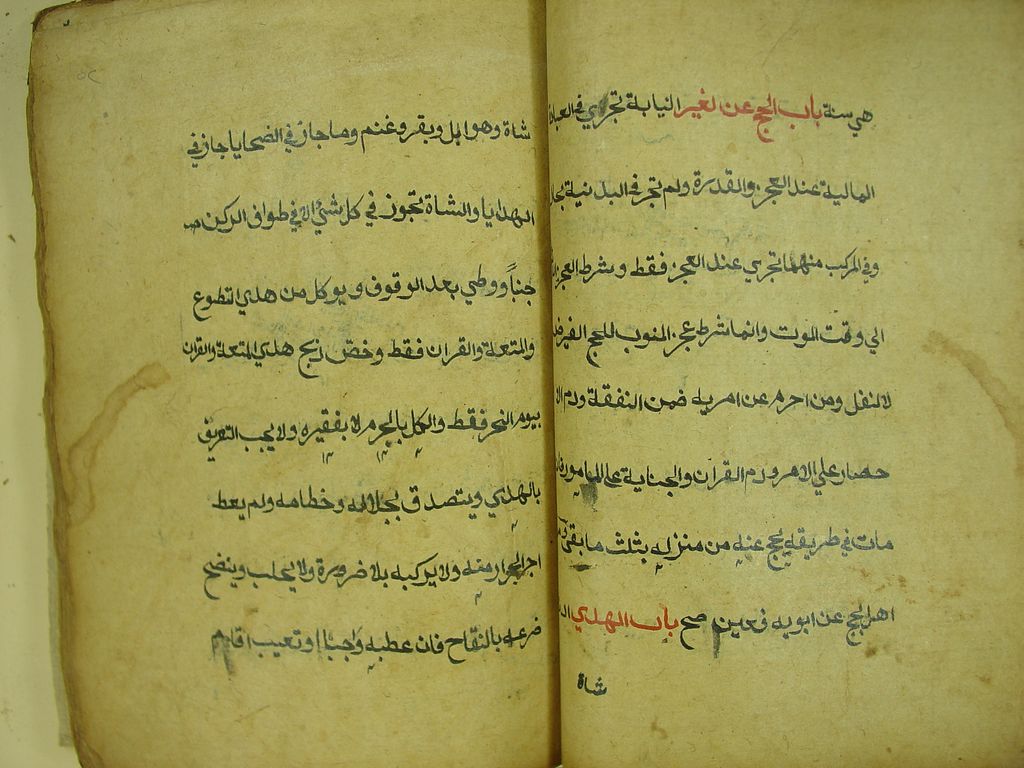 هي سنة باب الحج عن لغير النيابة تجزي في العبادا
المالية عند العجز والقدرة ولم تجز في البدنية بحا
وفي المركب منهما تجزي عند العجز فقط وبشرط العجز
الي وقت الموت وانما شرط عجز المنوب للحج الفرض
لا للنفل ومن احرم عن امريه ضمن النفقة ودم الا
حصار علي الامر ودم القران والجناية على المامور فا
مات في طريقه يحج عنه من منزله بثلث ما بقي
اهل بحج عن ابويه فعين صح باب الهدي
شاة
شاة وهو ابل وبقر وغنم وما جاز في الضحايا جاز في
الهدايا والشاة تجوز في كل شئ الا في طواف الركن
جنباً ووطي بعد الوقوف ويوكل من هدي التطوع
والمتعة والقران فقط وخص ذبح هدي المتعة والقران
بيوم النحر فقط والكل بالحرم لا بفقيره ولا يجب التعريف
بالهدي ويتصدق بجلاله وخطامه ولم يعط
اجر الجزار منه ولا يركبه بلا ضرورة ولا يحلب وينضح
ضرعه بالنقاح فان عطبه واجبا او تعيب اقام